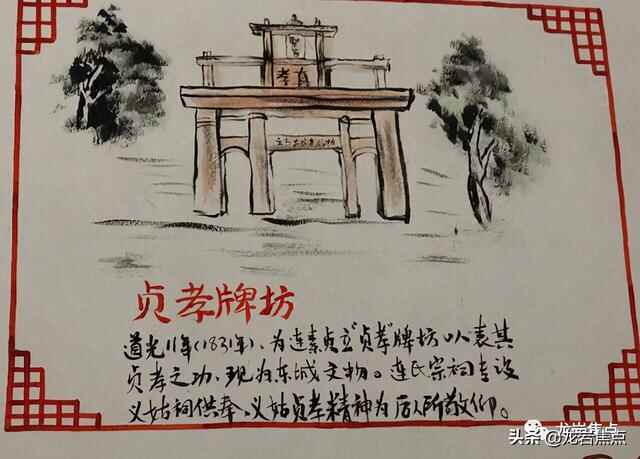 贞孝牌坊
道光11年(1831年)、为连素贞立"贞孝"牌坊以表其
贞孝之功、现为东城文物。连氏宗祠专设
义姑祠供奉、义姑贞孝精神为后人所敬仰。
龙岩焦点
头条@龙岩焦点